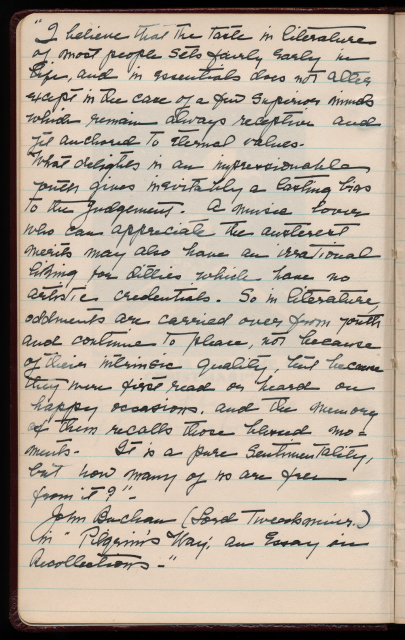 "I believe that the taste in literature
of most people sets fairly early in
life, and in essentials does not alter
except in the case of a few superior minds
which remain always receptive and
yet anchored to eternal values.
"What delights in an impressionable
youth gives inevitably a lasting bias
to the judgement. A music lover
who can appreciate the austerest
merits may also have an irrational
liking for ditties which have no
artistic credentials. So in literature,
oddments are carried over from youth
and continue to please, not because
of their intrinsic quality, but because
they were first read or heard on
happy occasions, and the memory
of them recalls those blessed mo=
ments. It is a pure sentimentality,
but how many of us are free
from it?"-
John Buchan (Lord Tweedsmuir.)
in "Pilgrim's Way; an Essay in
Recollections-"